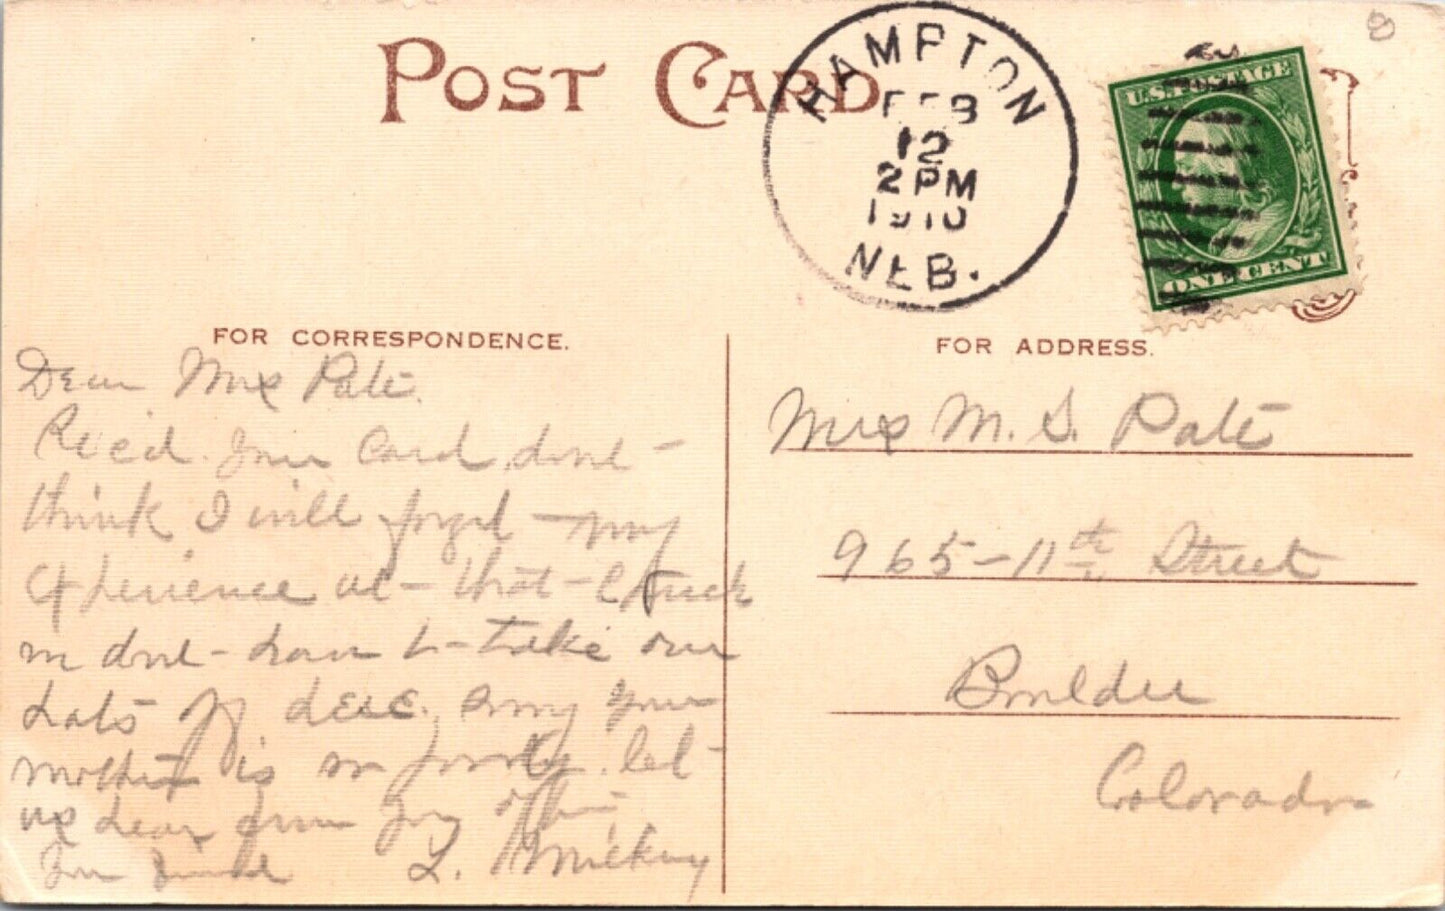 POST CARD
HAMPTON
FEB
12
2 PM
1910
NEB.
U.S. POSTAGE
ONE CENT
FOR CORRESPONDENCE.
Dear Mrs Pate.
Rec'd. your Card, dont
think I will forget my
experience at that
we dont have to take our
hats off here. Sorry your
mother is so poorly. let
us hear from you often
Your friend L.
FOR ADDRESS.
Mrs M. S. Pate
965-11th Street
Boulder
Colorado